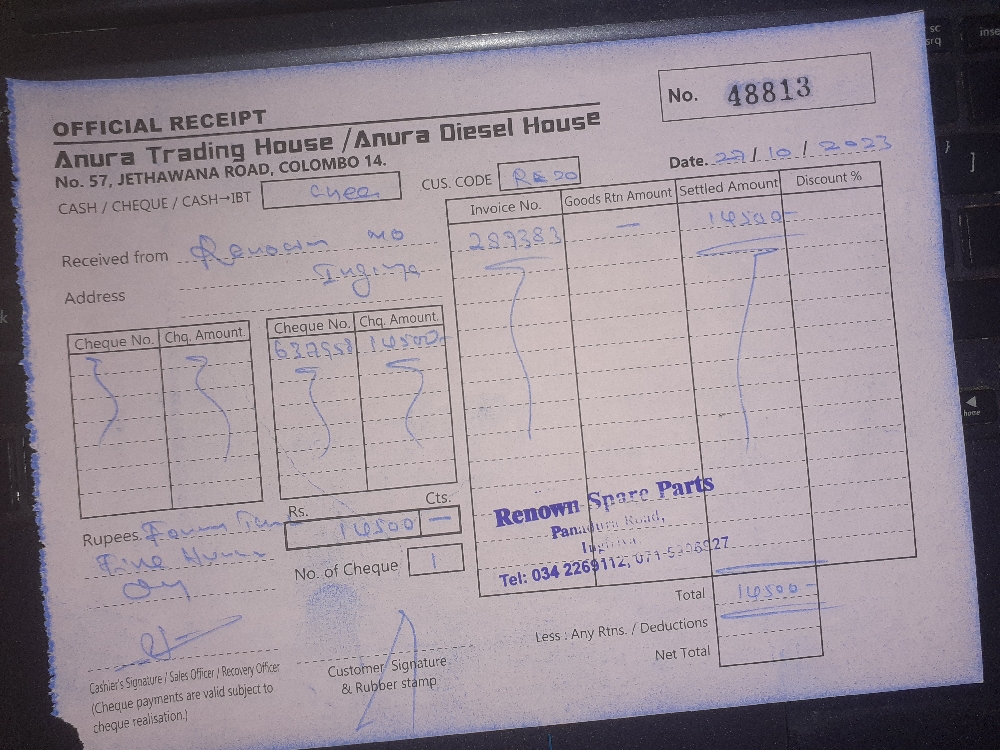 OFFICIAL RECEIPT
No. 48813
Anura Trading House /Anura Diesel House
No. 57, JETHAWANA ROAD, COLOMBO 14.
Date. 27/10/2023
CASH / CHEQUE / CASH→IBT
CUS. CODE
Invoice No. Goods Rtn Amount Settled Amount Discount %
289383 — 14500-
Received from
Address
Cheque No. Chq. Amount. Cheque No. Chq. Amount.
14500-
Rs. Cts.
Rupees. 14500 —
No. of Cheque 1
Renown Spare Parts
Panadura Road,
Tel: 034 2269112,
Total 14500-
Less : Any Rtns. / Deductions
Net Total
Cashier's Signature / Sales Officer / Recovery Officer
(Cheque payments are valid subject to
cheque realisation.)
Customer Signature
& Rubber stamp